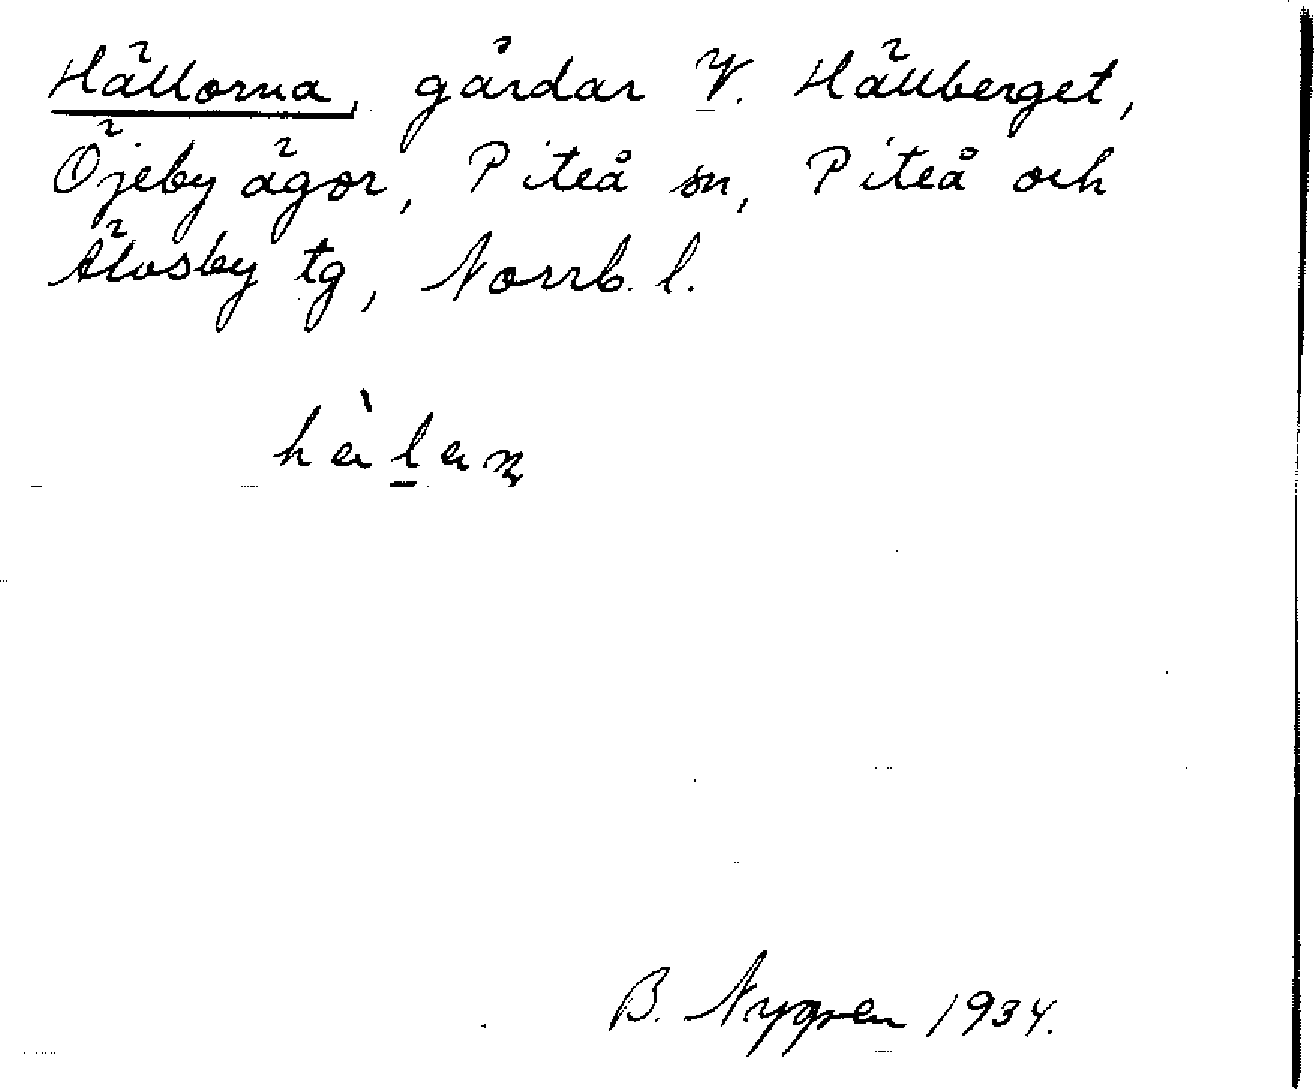 Hällorna, gårdar V. Hällberget,
Öjeby ägor, Piteå sn, Piteå och
Älvsby tg, Norrb. l.
B. Nygren 1934.